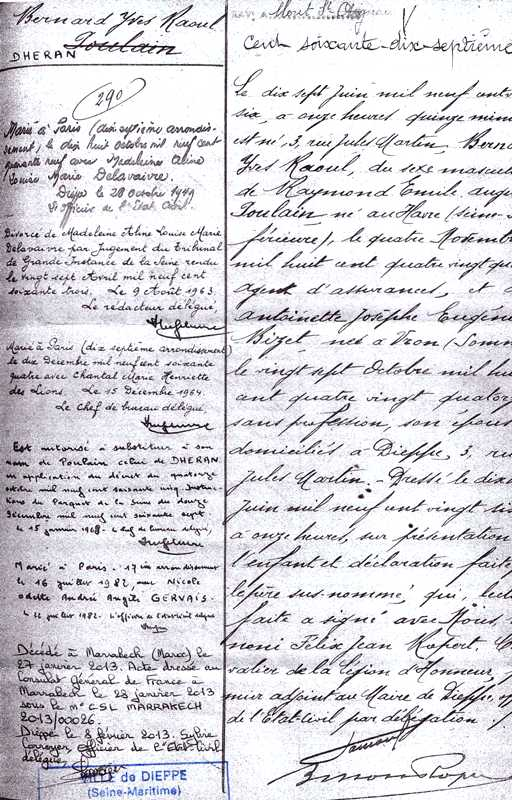 Bernard Yves Raoul
Poulain
DHERAN
290
Marié à Paris (dix septième arrondis-
sement) le dix huit octobre mil neuf cent
quarante neuf avec Madeleine Aline
Louise Marie Delavaivre.
Dieppe le 28 Octobre 1949
L'officier de l'Etat Civil.
Divorcé de Madeleine Aline Louise Marie
Delavaivre par Jugement du Tribunal
de Grande Instance de la Seine rendu
le vingt sept Avril mil neuf cent
soixante trois. Le 9 Août 1963
Le rédacteur délégué,
Marié à Paris (dix septième arrondissement)
le dix Décembre mil neuf cent soixante
quatre avec Chantal Marie Henriette
des Lions. Le 15 Décembre 1964
Le Chef de bureau délégué,
Est autorisé à substituer à son
nom de Poulain celui de DHERAN
en application du décret du quatorze
octobre mil neuf cent soixante cinq. Instruc-
tions du Parquet de la Seine du douze
Décembre mil neuf cent soixante sept
le 15 janvier 1968. Le chef de bureau délégué,
Marié à Paris. 17ème arrondissement
le 16 juillet 1982, avec Nicole
Odette Andrée Angèle GERVAIS.
le 22 juillet 1982. L'officier de l'état civil délégué
Décédé à Marrakech (Maroc) le
27 janvier 2013. Acte dressé au
Consulat Général de France à
Marrakech le 28 janvier 2013
sous le n° CSL MARRAKECH
2013/00026.
Dieppe le 8 février 2013. Sylvie
officier de l'Etat-Civil
délégué,
VILLE de DIEPPE
(Seine-Maritime)
Mont St Aignan
Cent soixante-dix-septième
Le dix sept Juin mil neuf cent
six, à onze heures quinze min
est né, 3, rue Jules Martin, Berna
Yves Raoul, du sexe mascul
de Raymond Emile Augu
Poulain né au Havre (Seine-
férieure), le quatre Novembre
mil huit cent quatre vingt qu
agent d'assurances, et d
Antoinette Josephe Eugéni
Bizet née à Vron (Somm
le vingt sept Octobre mil hui
cent quatre vingt quator
sans profession, son épous
domiciliés à Dieppe, 3, ru
Jules Martin. - Dressé le dix
Juin mil neuf cent vingt si
à onze heures, sur présentation
l'enfant et déclaration faite
le père sus-nommé, qui, lect
faite a signé avec Nous,
Félix Jean Ropert, C
valier de la Légion d'Honneur,
mier adjoint au Maire de Dieppe, of
de l'Etat-Civil par délégation.